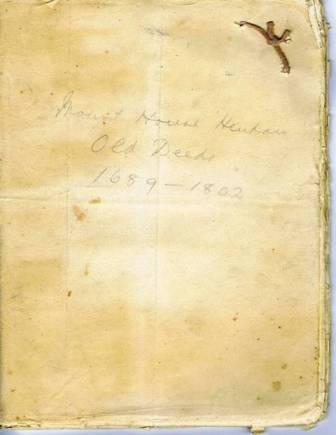 Mount House Henham
Old Deeds
1689-1802